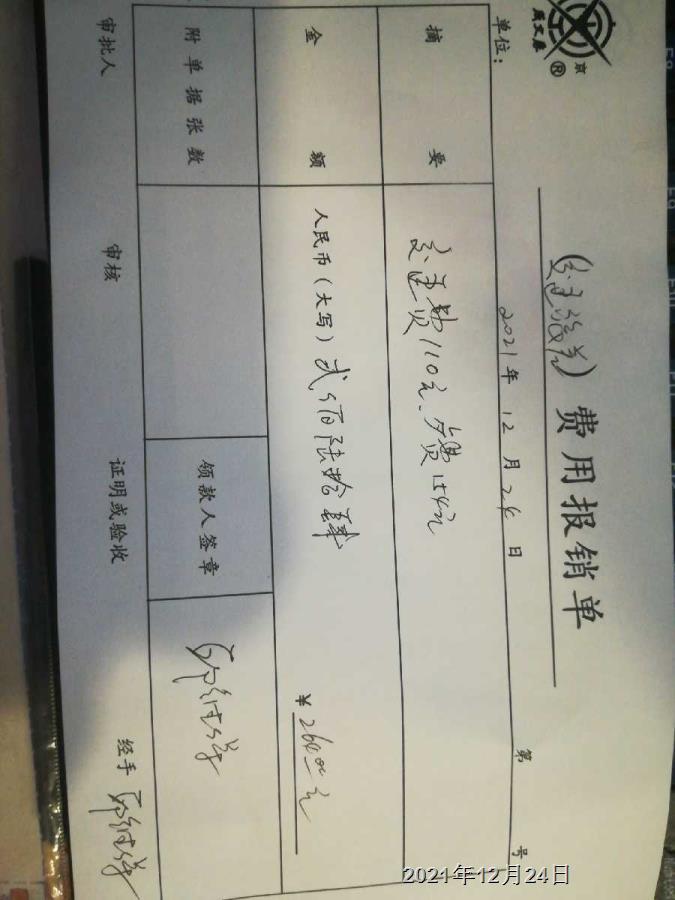 京
®
(交通 ) 费用报销单
单位:
2021年 12月 24日
第 号
摘 要
交通费110元、 费154元
金 额
人民币(大写) 贰佰陆拾肆
¥264.00元
附单据张数
领款人签章
审批人
审核
证明或验收
经手
2021年12月24日